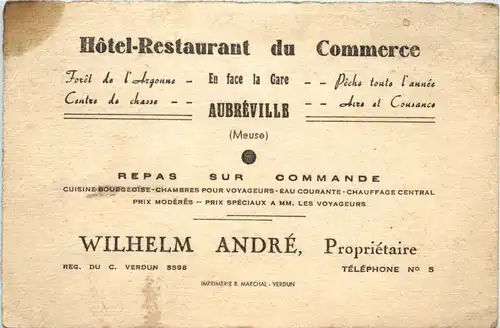 Hôtel-Restaurant du Commerce
Forêt de l'Argonne - En face la Gare - - Pêche toute l'année
Centre de chasse - - AUBRÉVILLE - - Aire et Cousance
(Meuse)
REPAS SUR COMMANDE
CUISINE BOURGEOISE - CHAMBRES POUR VOYAGEURS - EAU COURANTE - CHAUFFAGE CENTRAL
PRIX MODÉRÉS -- PRIX SPÉCIAUX A MM. LES VOYAGEURS
WILHELM ANDRÉ, Propriétaire
REG. DU C. VERDUN 5598 TÉLÉPHONE Nº 5
IMPRIMERIE R. MARCHAL - VERDUN